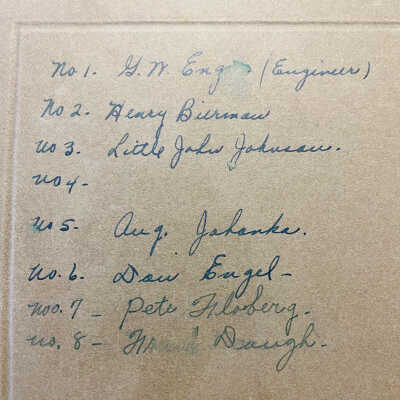 No 1. G. W. Eng (Engineer)
No 2. Henry Bierman
No 3. Little John Johnson.
No 4-
No 5. Aug. Johanka.
No. 6. Dan Engel-
noo. 7 - Pete Floberg.
no. 8 - Daugh.